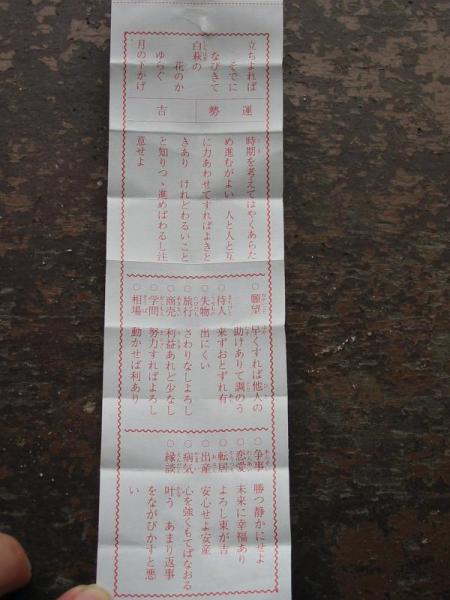 立ちよれば
そでに
なびきて
白萩の
花のか
ゆらぐ
月の下かげ
運勢 吉
時期を考えてはやくあらた
め進むがよい 人と人と互
に力あわせてすればよきこと
きあり けれどわるいこと
と知りつゝ進めばわるし注
意せよ
○願望 早くすれば他人の
助けありて調のう
○待人 来ずおとずれ有
○失物 出にくい
○旅行 さわりなしよろし
○商売 利益あれど少なし
○学問 努力すればよろし
○相場 動かせば利あり
○争事 勝つ静かにせよ
○恋愛 未来に幸福あり
○転居 よろし東が吉
○出産 安心せよ安産
○病気 心を強くもてばなおる
○縁談 叶う あまり返事
をながびかすと悪
い